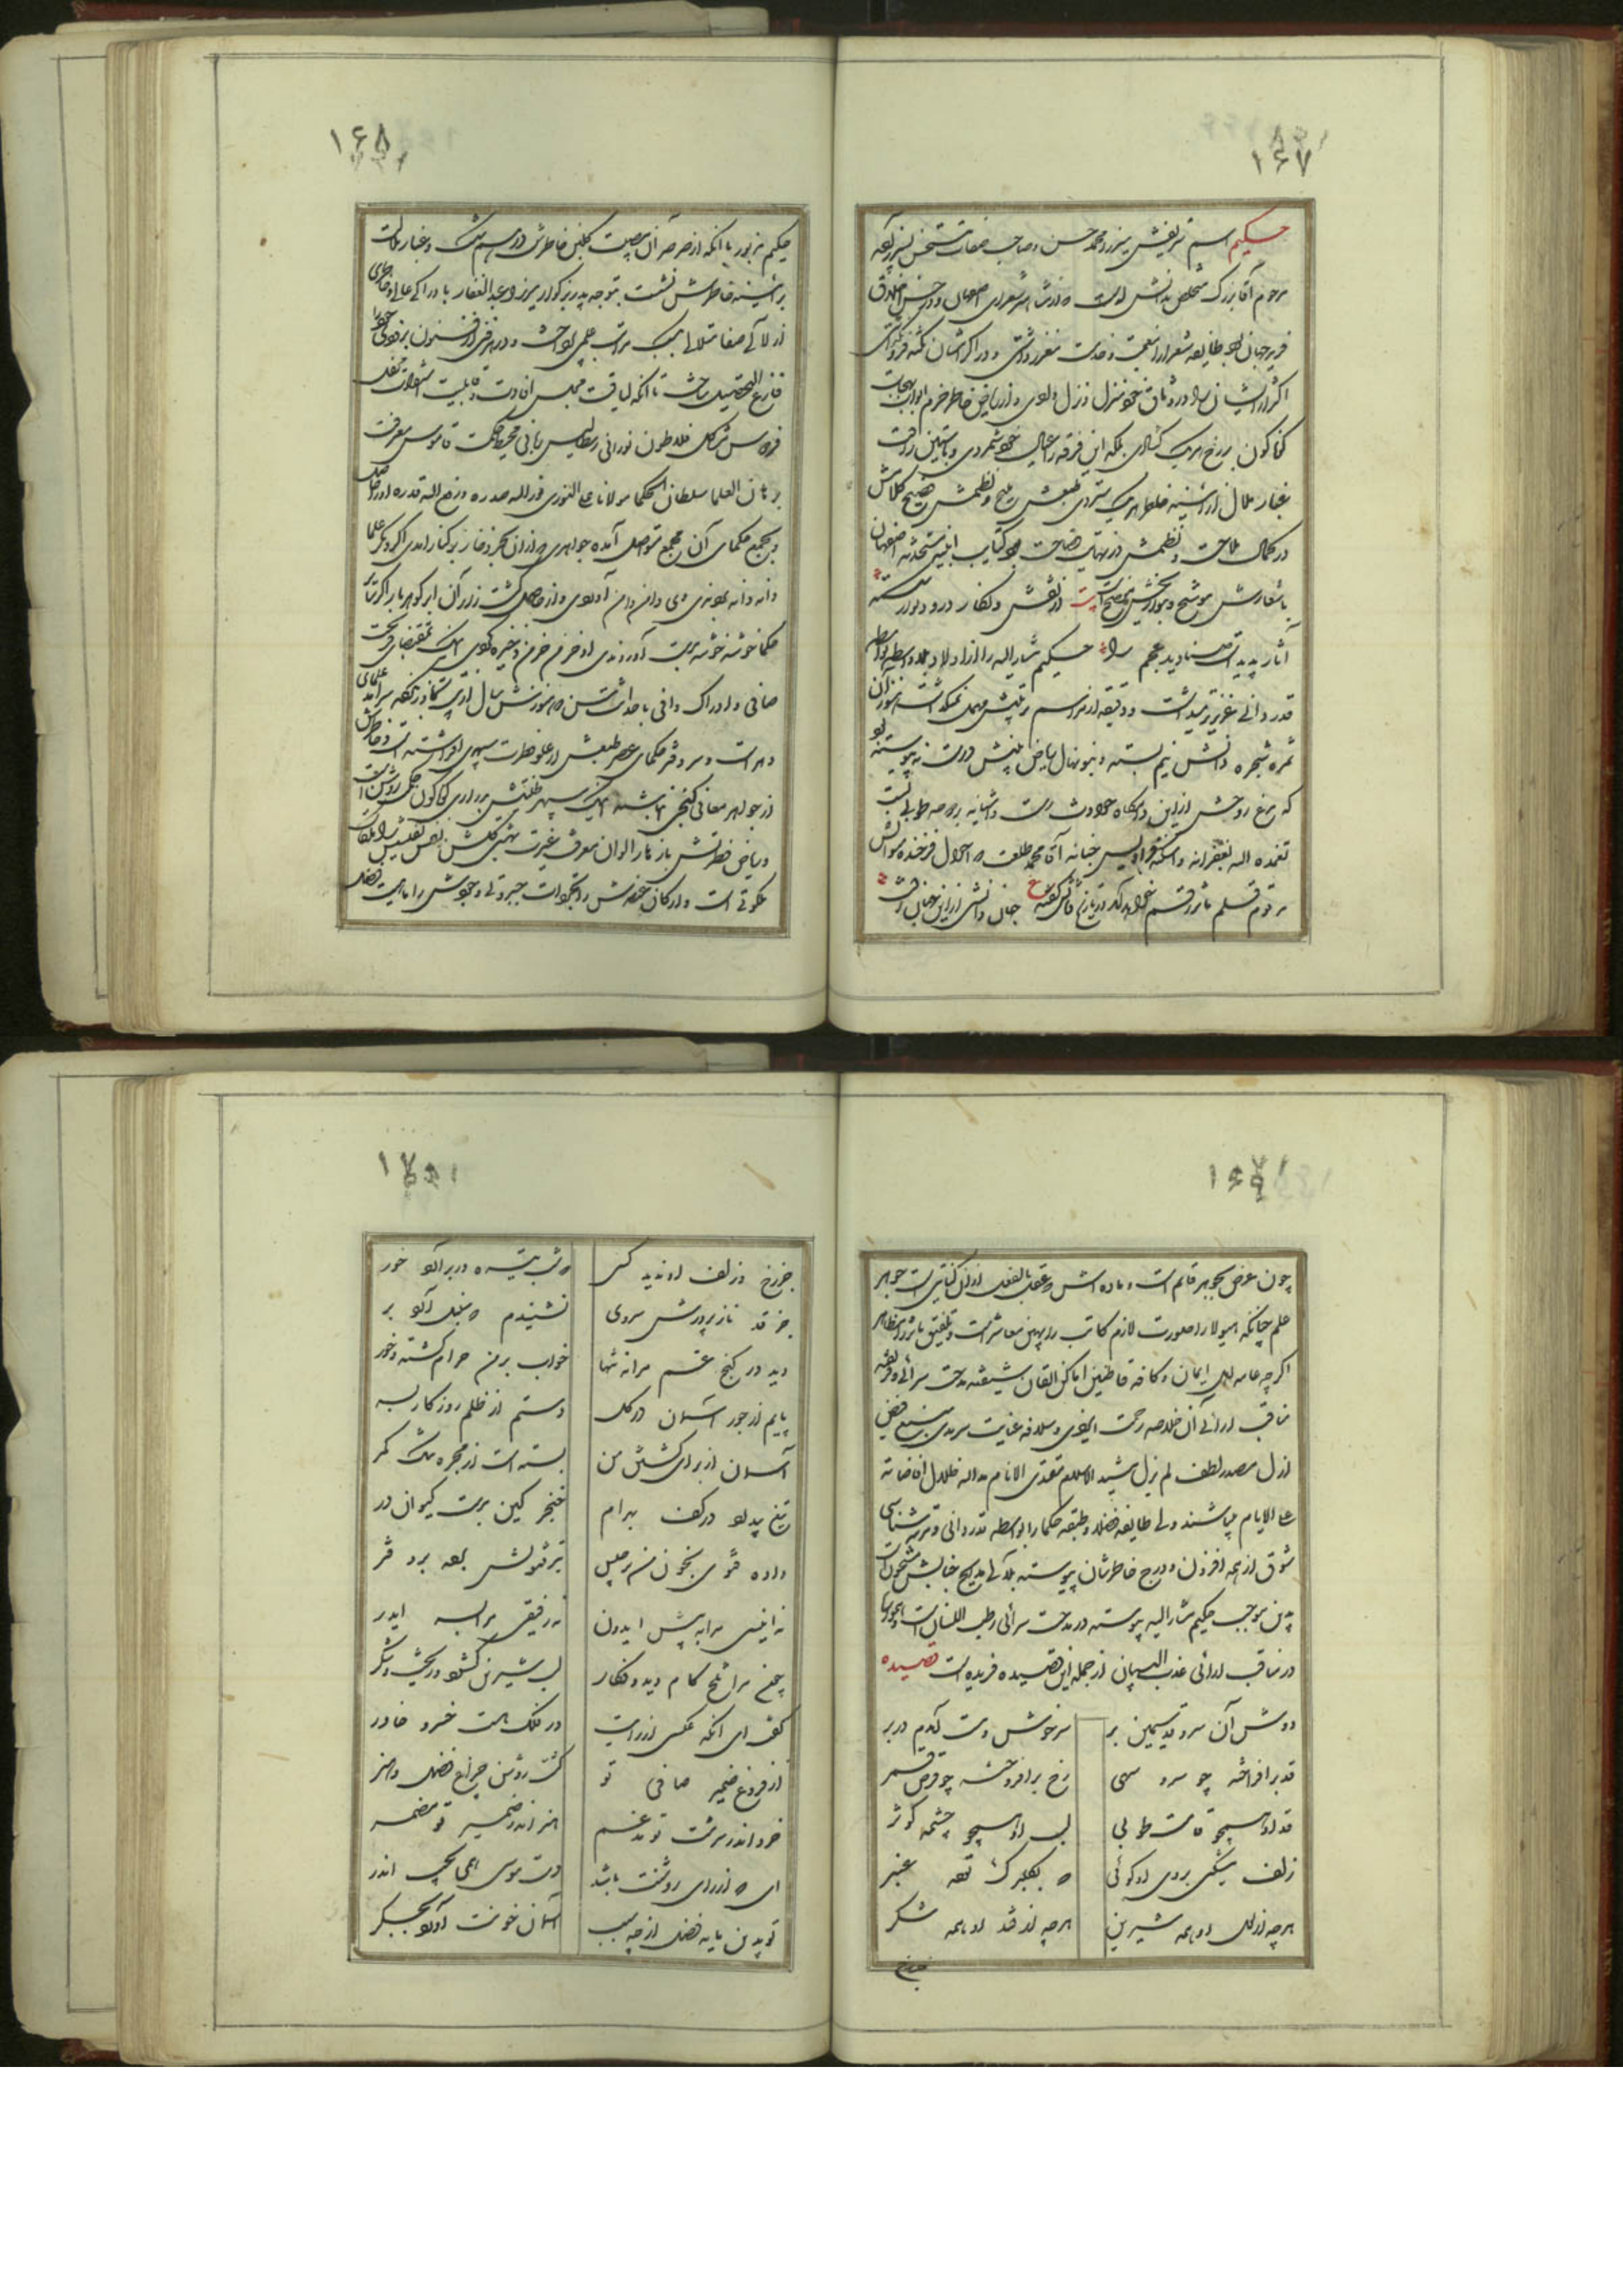 ۱۶۷
حکیم اسم شریفش میرزا محمد حسن و صاحب صفات مستحسن نبیره
مرحوم آقا بزرگ متخلص بدانش است که از مشاهیر شعرای اصفهان و در حسن اخلاق
فرید جهان بود طایفه شعرا را نعمت و خدمت
اکثر از ایشان را در وثاق خود منزل و نزل دادی و از ریاض خاطر خرم ابواب بهجات
گوناگون بر رخ هریک گشادی بلکه این فرقه را عیال خود شمردی و باستین رأفت
غبار ملال از آئینه خاطر هریک ستردی طبعش ملیح و نظمش فصیح کلامش
در کمال ملاحت و نظمش در نهایت فصاحت بود کتایب ابنیه مستحدثه اصفهان
باشعارش موشح از نقش و نگار در و دیوار شکسته
آثار پدید است صنادید عجم را حکیم مشارالیه را از اولاد بلاواسطه
قدر دانی عزیزتر میداشت و دقیقه از مراسم تربیتش مهمل نمیگذاشت هنوز آن
ثمره شجره دانش نیم بسته و بنو نهال ریاض بینش درست نه پیوسته بود
که مرغ روحش از این دامگاه حوادث رست و آشیانه بروضه طوبی بست
تغمده الله بغفرانه و اسکنه فرادیس جنانه آقا محمد طلعت که احوال فرخنده مآلش
مرقوم قلم مآثر رقم خواهد آمد در تاریخ فوتش گفته ع جان دانش از این جهان رفت
۱۶۸
حکیم مزبور با آنکه از صرصر آن مصیبت گلبن خاطرش در هم شکست و غبار ملالت
بر آئینه خاطرش نشست بتوجه پدر بزرگوار میرزا عبدالغفار با ادراکی عالی و خاطری
از لآلی صفا متلالی بکسب مراتب علمی پرداخت و در هر فنی از فنون بزودی خود را
فارغ التحصیل ساخت تا آنکه لیاقت مجلس افادت و قابلیت اشراق محفل
فردوس مشاکل فلاطون نورانی ارسطالیس ربانی محیط حکمت قاموس معرفت
برهان العلما سلطان الحکما مولانا علی النوری نورالله صدره و رفع الله قدره او را حاصل
و بمجمع حکمای آن مجمع متواصل آمده جواهری که از آن بحر ذخار بر کنار آمدی اگر دیگر علما
دانه دانه بر بودندی وی دامن دامن آوردی و از حاصل کشت زار آن ابر گوهر بار اگر سایر
حکما خوشه خوشه بدست آوردندی او خرمن خرمن ذخیره کردی اینک بمقتضای فطرت
صافی و ادراک وافی با حداثت سن که هنوزش سال از سی متجاوز نگشته سرآمد علمای
دهر است و سر دفتر حکمای عصر طبعش از علو فطرت سپهری افراشته است و خاطرش
از جواهر معانی گنجی انباشته اینک سپهر طلعتش بدراری گوناگون حکمی روشن است
و ریاض فطرتش بازهار الوان معرفت غیرت بهشت گلشن نفس نفیسش را ملکات
ملکوتی است و ارکان عنصرش را تجردات جبروتی وجودش را ماهیت فضل
۱۶۹
چون عرض بجوهر قائم است و ماده اش بعقل بالفعل از ازل کتابتی است جواهر
علم چنانکه هیولا را صورت لازم کاتب را بهین معاشر است و بتلفیق مآثرش ناظر
اگرچه عامه اهل ایمان و کافه قاطنین اماکن ایقان شیفته مدحت سرائی و فریفته
مناقب آرائی آن خلاصه رحمت ایزدی و سلاله عنایت سرمدی منبع فیض
ازل مصدر لطف لم یزل سید الاسلام مقتدی الانام مدالله ظلال افاضاته
علی الایام میباشند ولی طایفه فضلا و طبقه حکما را بواسطه قدر دانی و مرتبه شناسی
شوق از همه افزون و درج خاطرشان پیوسته بلآلی مدایح جنابش مشحون است
بدین موجب حکیم مشارالیه پیوسته در مدحت سرائی رطب اللسان است و همواره
در مناقب آرائی عذب البیان از جمله این قصیده فریده است قصیده
دوش آن سرو قد سیمین بر سرخوش و مست آمدم در بر
قد برافراخته چو سرو سهی رخ برافروخته چو قرص قمر
قد او همچو قامت طوبی لب او همچو چشمه کوثر
زلف مشکین بروی او گوئی که بگلبرگ توده عنبر
هرچه از لعل او همه شیرین هرچه از قند او همه شکر
جز رخ
۱۷۰
جز رخ و زلف او ندید کسی که شب تیره در بر آرد خور
جز قد نازپرورش سروی نشنیدم که سنبل آرد بر
دید در کنج غم مرا تنها خواب بر من حرام گشته و خور
پایم از جور آسمان در گل دستم از ظلم روزگار بسر
آسمان از برای کشتن من بسته است از مجره تنگ کمر
تیغ بیداد در کف بهرام خنجر کین بدست کیوان در
داده فتوی بخون من برجیس تیر فتواش برده بر دفتر
نه انیسی مرا به پیش ایدون نه رفیقی مرا بسر ایدر
چون مرا تلخ کام دید و فکار لب شیرین گشود و ریخت شکر
گفت ای آنکه عکسی از رایت در فلک هست خسرو خاور
از فروغ ضمیر صافی تو گشت روشن چراغ فضل و هنر
خرد اندر سرشت تو مدغم هنر اندر ضمیر تو مضمر
ای که از رای روشنت باشد دست موسی همی بجیب اندر
تو بدین پایه فضل از چه سبب آسمان خونت آورد بجگر